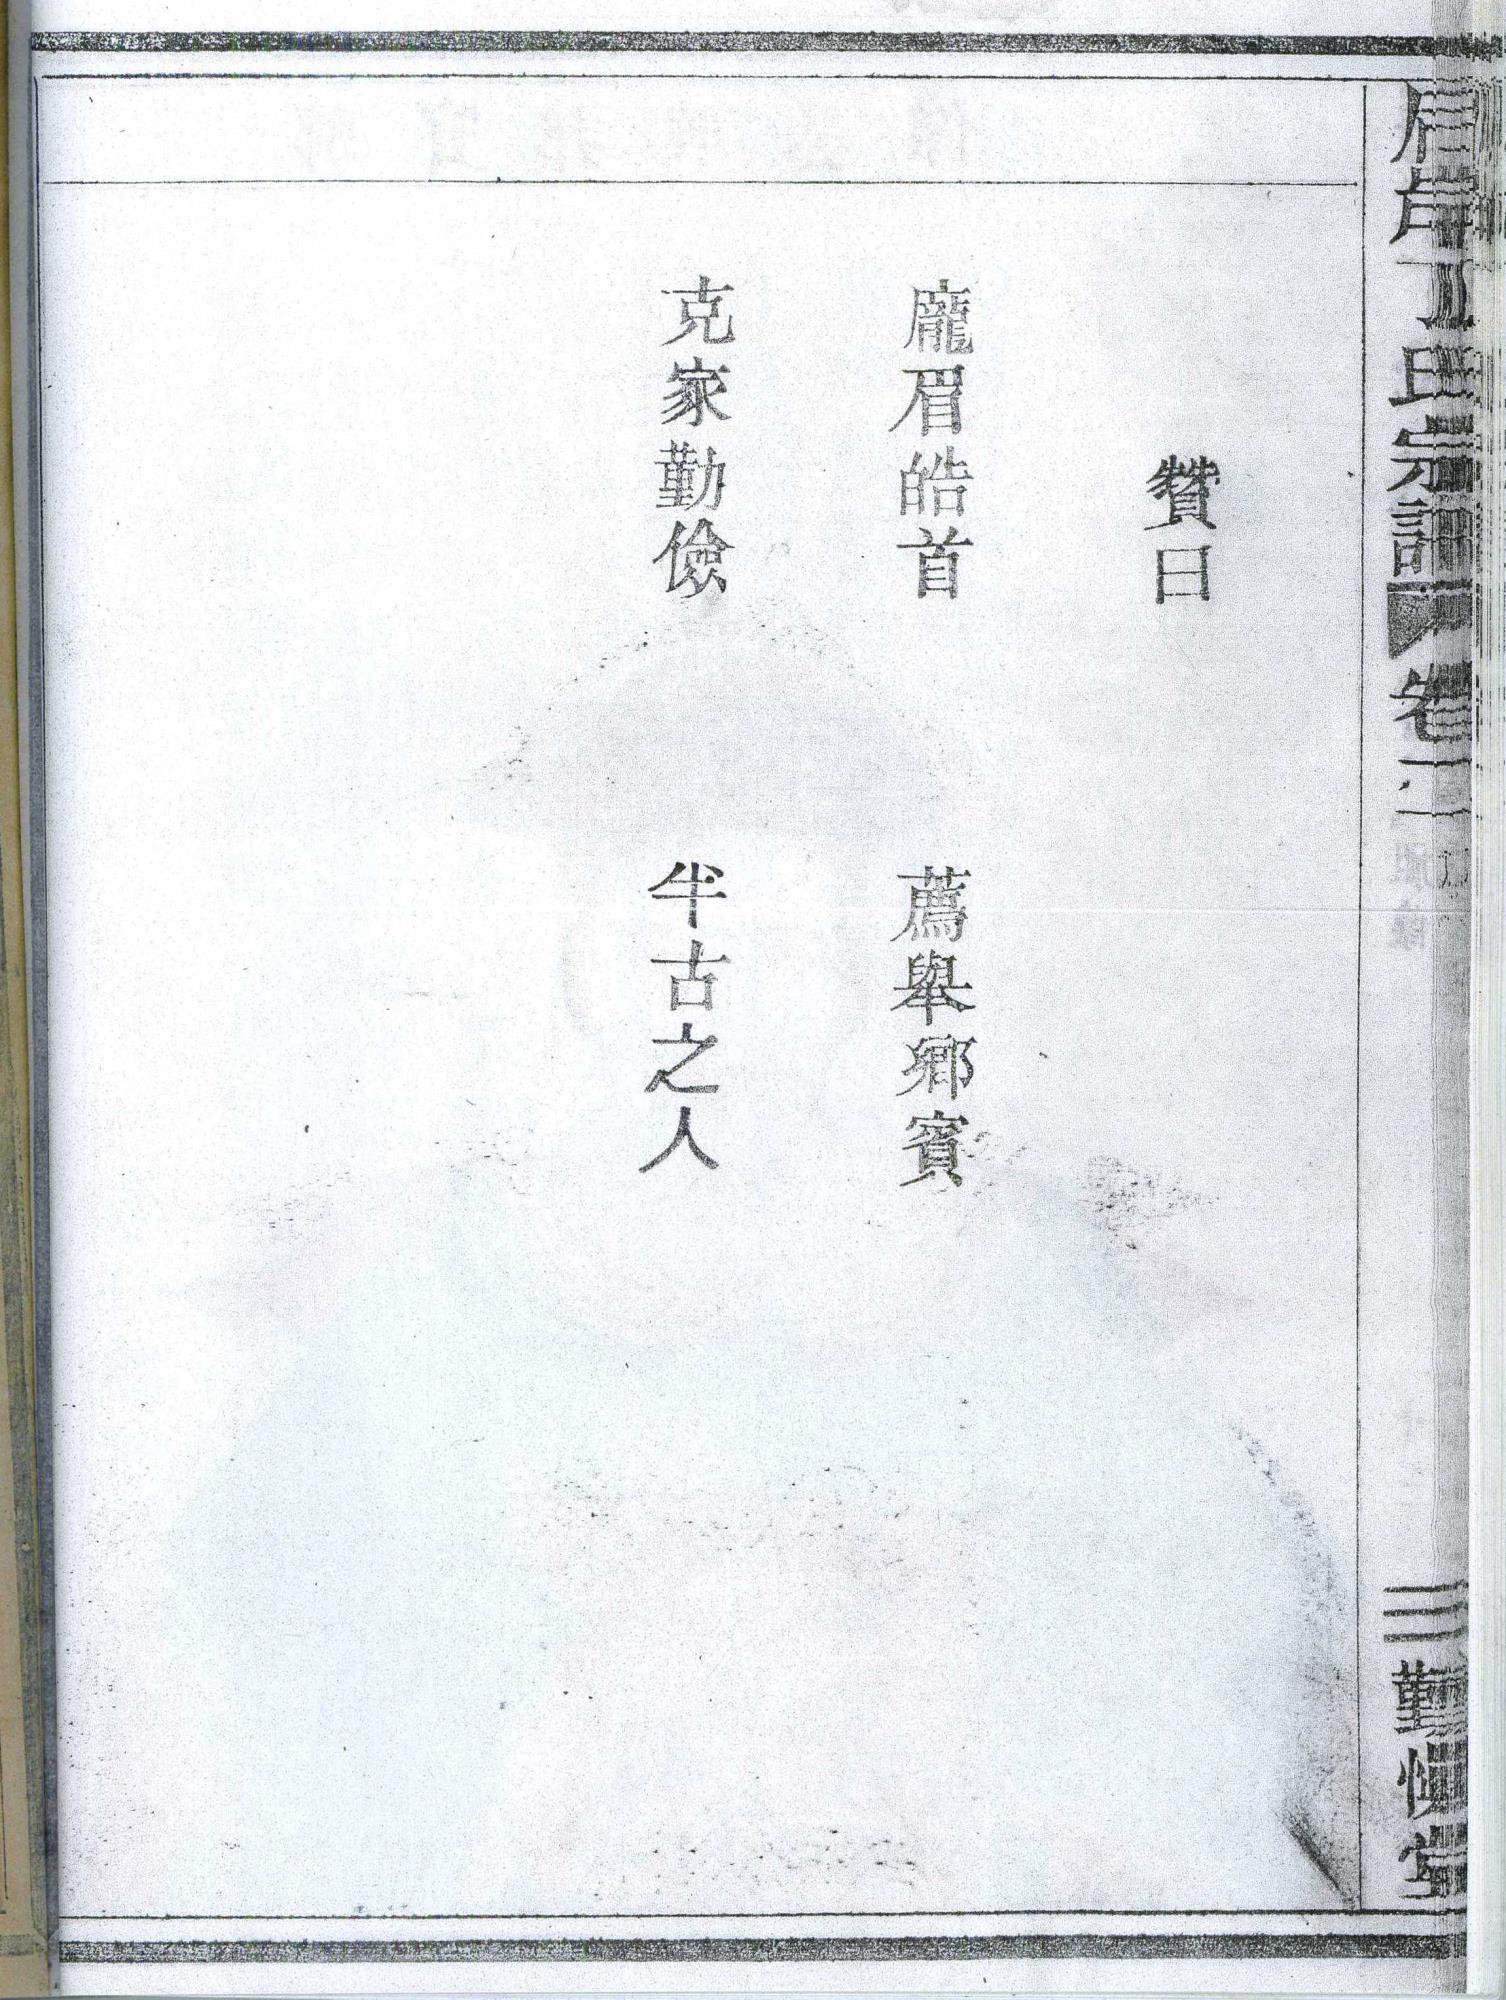 丁氏宗譜 卷二
三 勤慎堂
贊曰
龐眉皓首 薦舉鄉賓
克家勤儉 半古之人